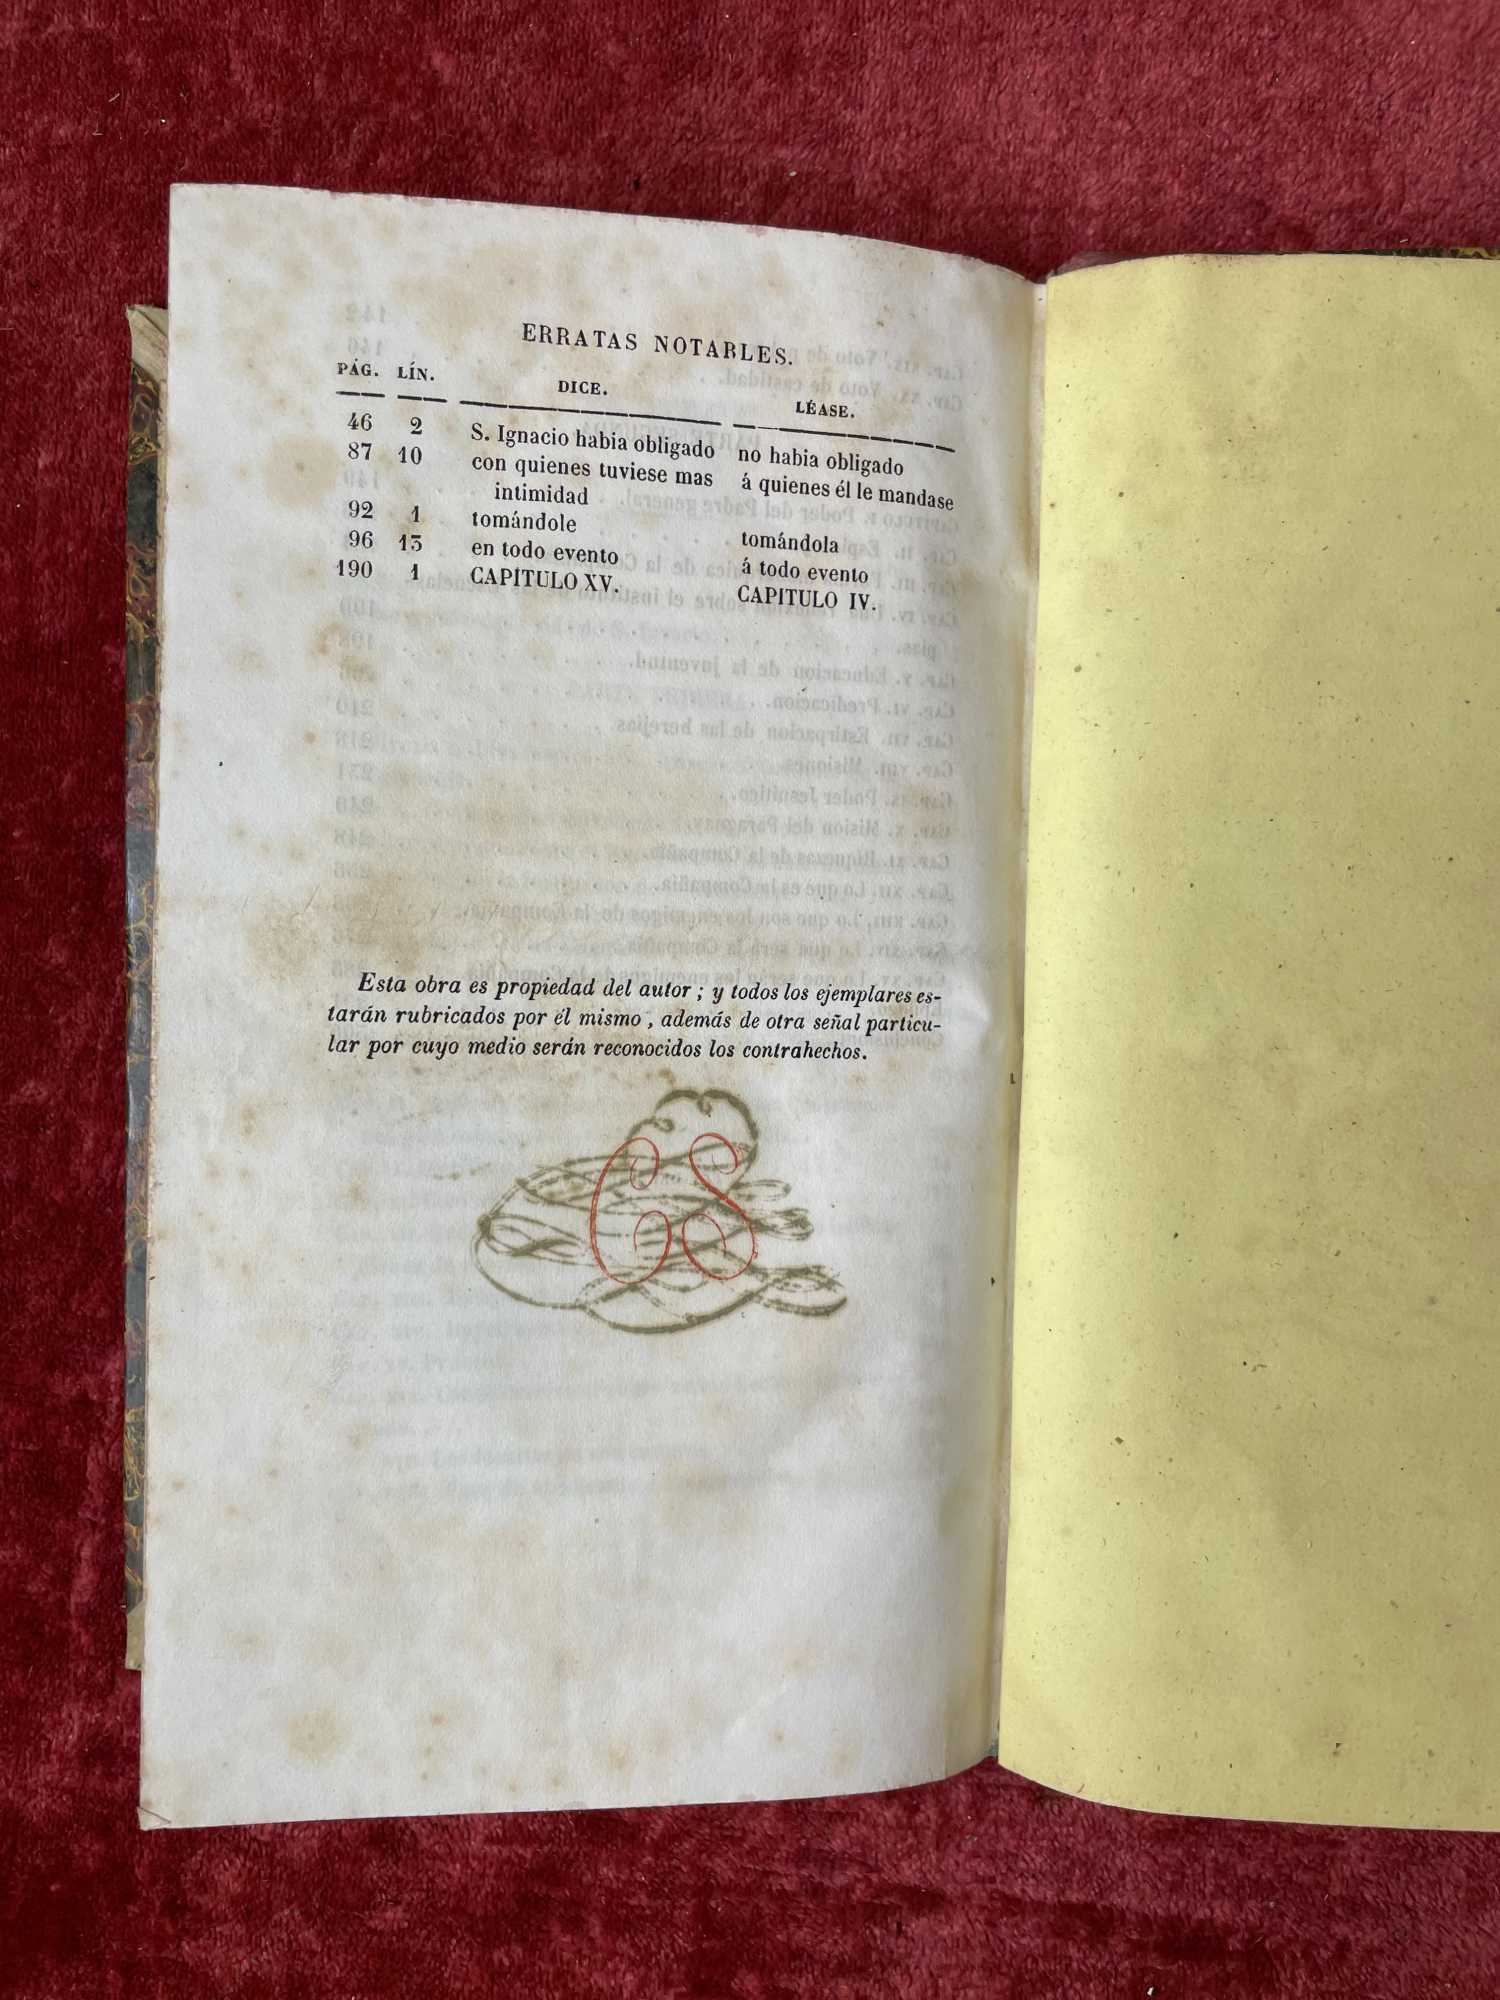 ERRATAS NOTABLES.
PÁG. LÍN. DICE. LÉASE.
46 2 S. Ignacio habia obligado no habia obligado
87 10 con quienes tuviese mas á quienes él le mandase
intimidad
92 1 tomándole tomándola
96 13 en todo evento á todo evento
190 1 CAPÍTULO XV. CAPITULO IV.
Esta obra es propiedad del autor ; y todos los ejemplares es-
tarán rubricados por él mismo , además de otra señal particu-
lar por cuyo medio serán reconocidos los contrahechos.
CS